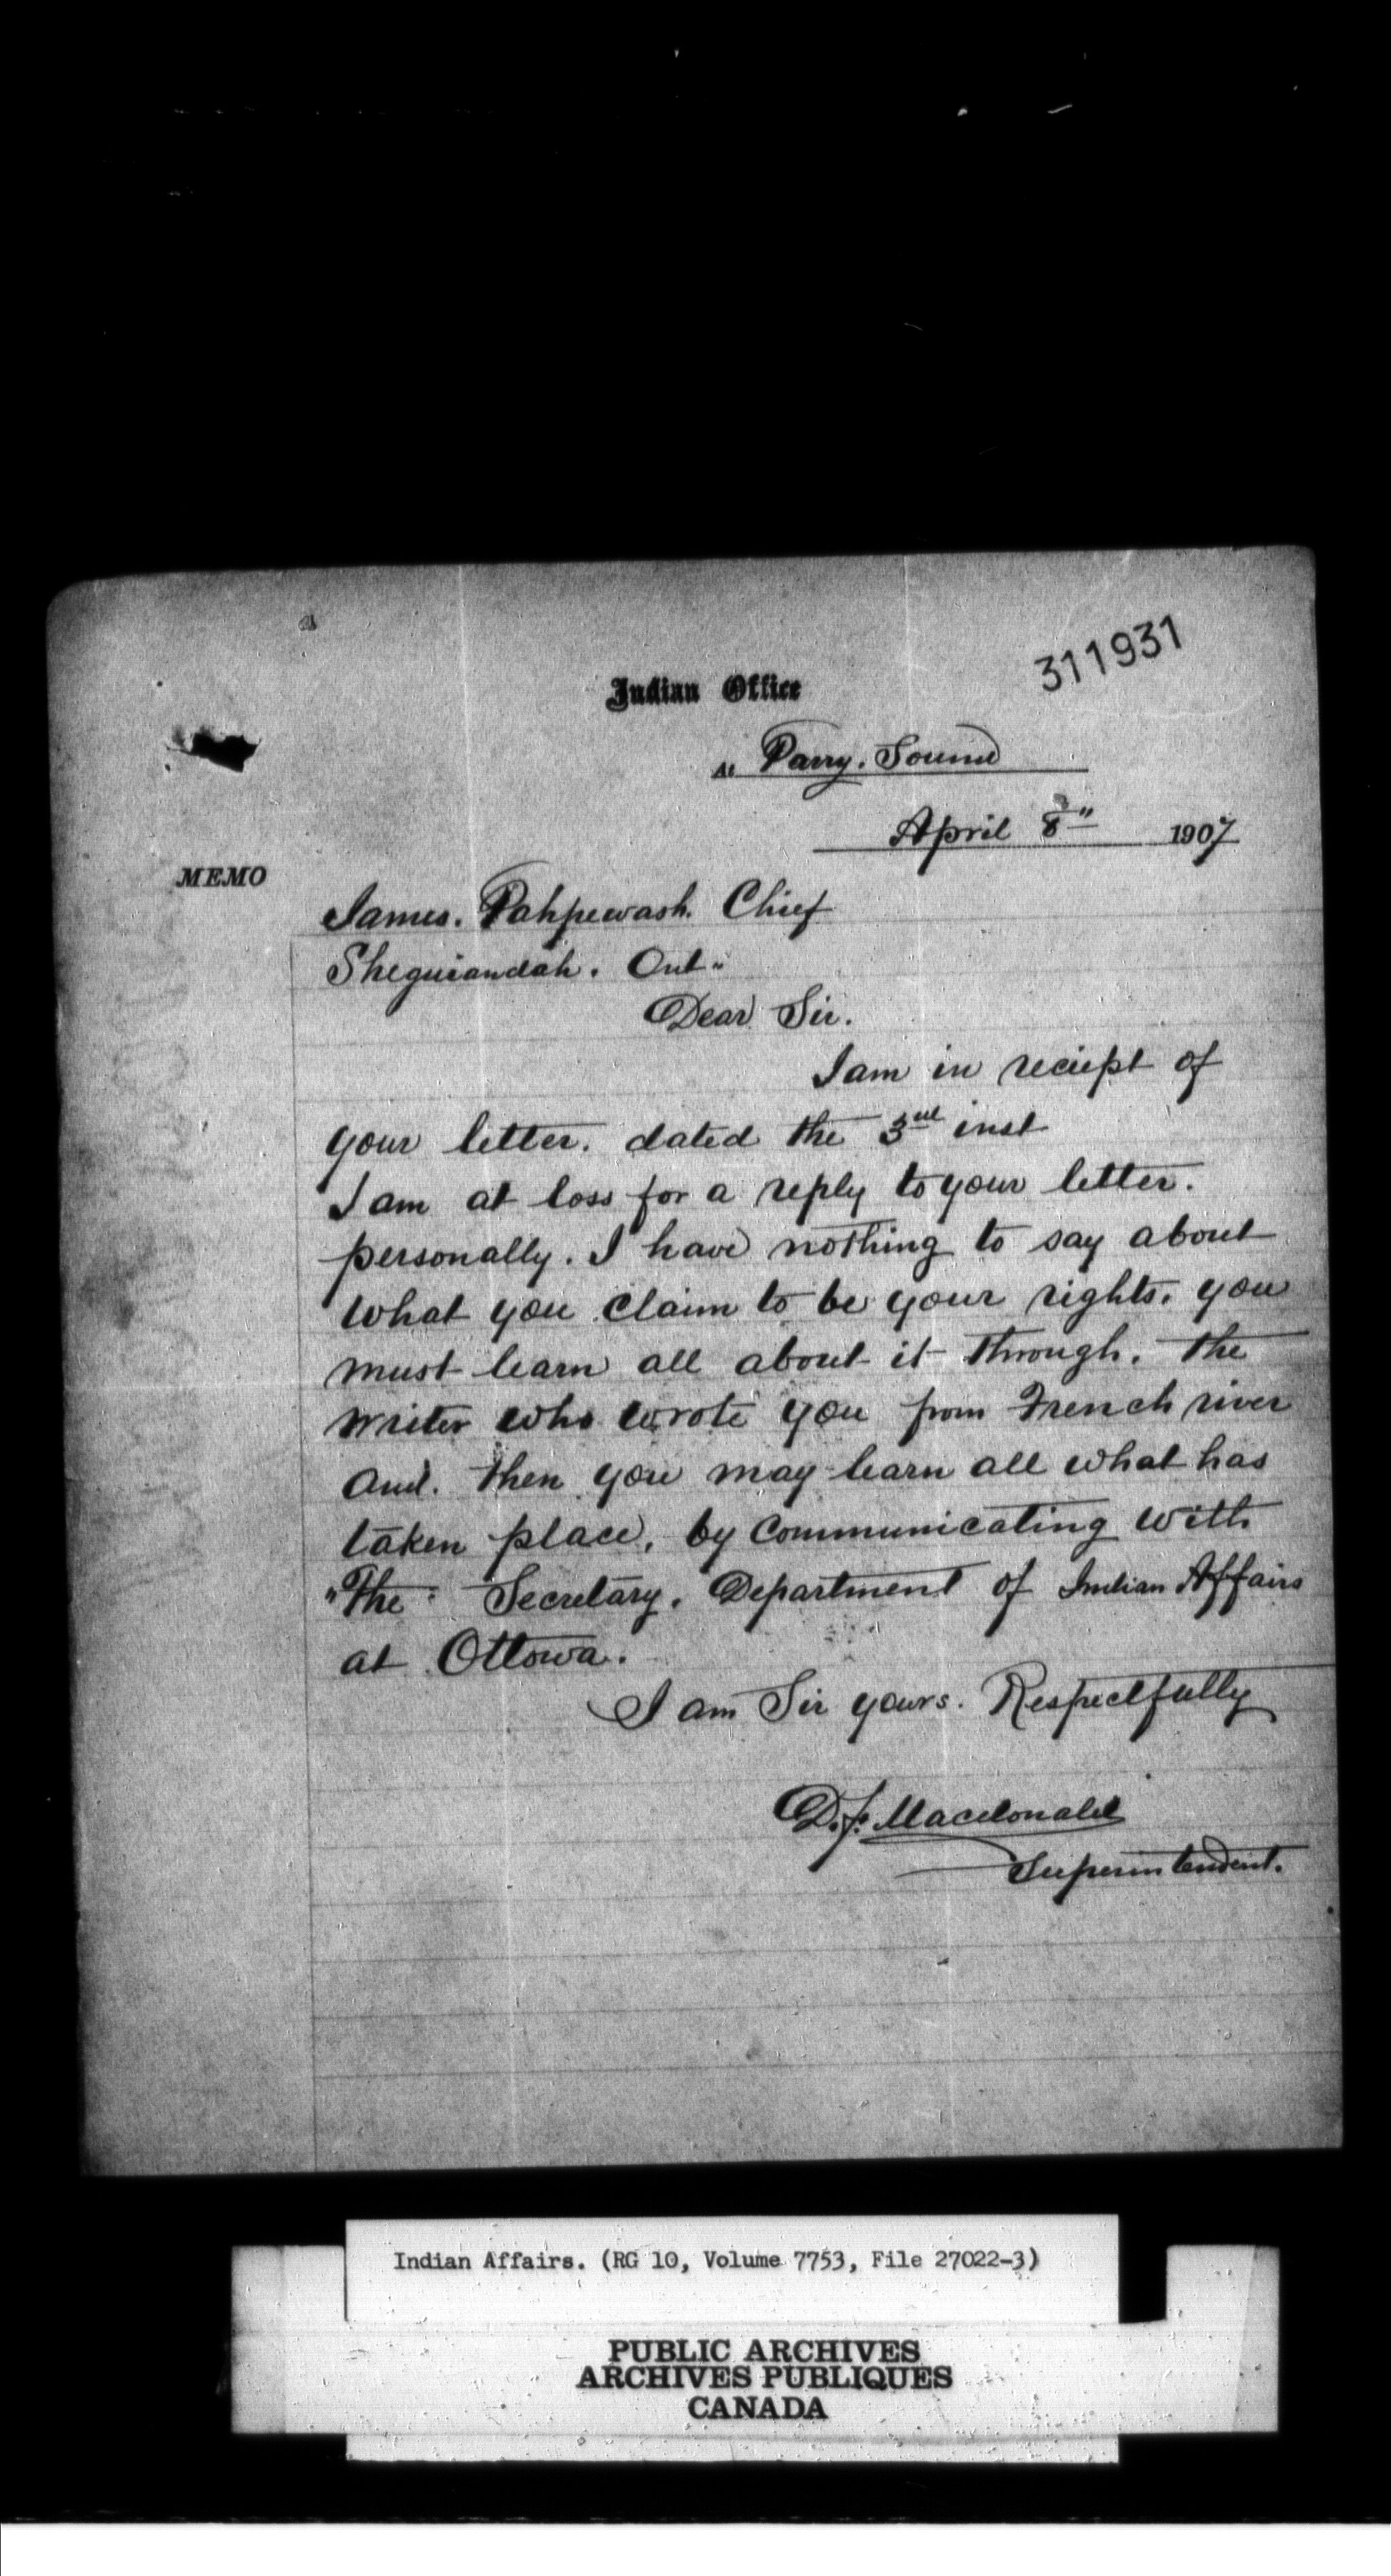 311931
Indian Office
At Parry. Sound
April 8" 1907
MEMO
James. Pahpewash. Chief
Sheguiandah. Ont"
Dear Sir.
I am in reciept of
your letter. dated the 3rd inst
I am at loss for a reply to your letter.
personally. I have nothing to say about
what you claim to be your rights. you
must learn all about it through. the
writer who wrote you from French river
and. then you may learn all what has
taken place, by communicating with
"The" Secretary. Department of Indian Affairs
at Ottowa.
I am Sir yours. Respectfully
D. F. Macdonald
Superintendent.
Indian Affairs. (RG 10, Volume 7753, File 27022-3)
PUBLIC ARCHIVES
ARCHIVES PUBLIQUES
CANADA